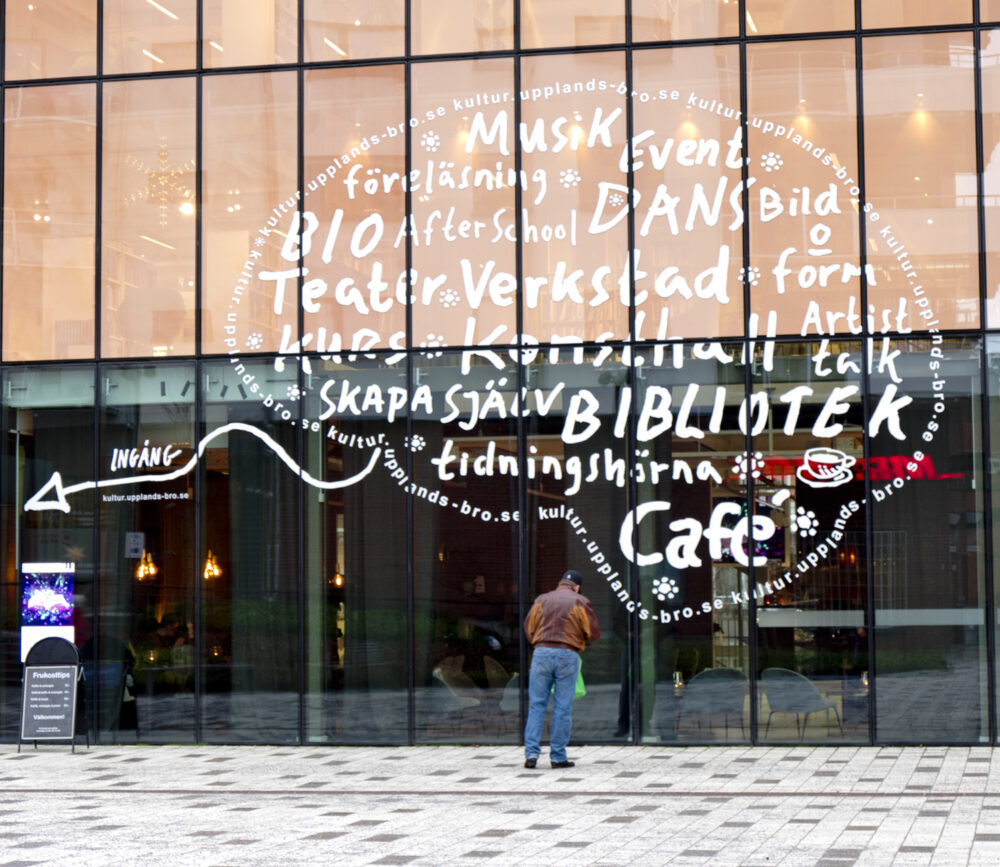 kultur.upplands-bro.se kultur.upplands-bro.se kultur.upplands-bro.se kultur.upplands-bro.se
Musik
Event
föreläsning
DANS
Bild
BIO
AfterSchool
o
Teater
Verkstad
form
kurs
Konsthall
Artist
talk
SKAPA SJÄLV
BIBLIOTEK
tidningshörna
Café
kultur.upplands-bro.se kultur.upplands-bro.se kultur.upplands-bro.se
INGÅNG
kultur.upplands-bro.se
Frukosttips
Välkommen!